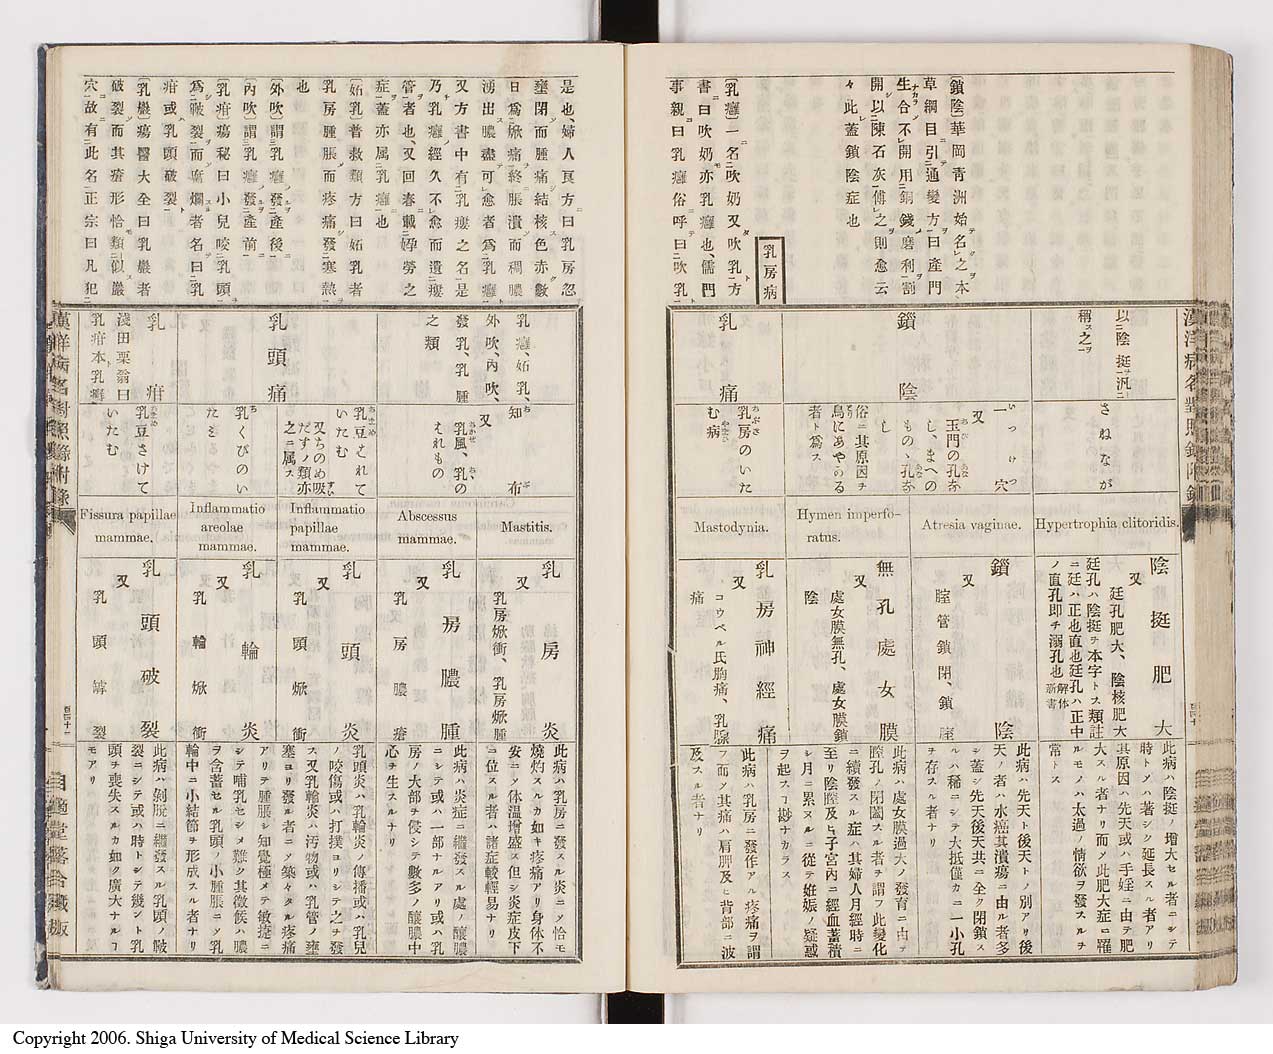 〔鎖陰〕華岡青洲始名之本
草綱目引通變方曰產門
生合不開用銅錢磨利割
開以陳石灰傅之則愈云
々此蓋鎖陰症也
乳房病
〔乳癰〕一名吹奶又吹乳方
書曰吹奶亦乳癰也、儒門
事親曰乳癰俗呼曰吹乳
漢洋病名對照錄附錄
以陰挺汎
稱ス之ヲ
さねなが
Hypertrophia clitoridis.
陰挺肥大
又
廷孔肥大、陰核肥大
廷孔ハ陰挺ヲ本字トス類註
ニ廷ハ正也直也廷孔ハ正中
ノ直孔即チ溺孔也 解体新書
此病ハ陰挺ノ增大セル者ニシテ
時トメハ著シク延長スル者アリ
其原因ハ先天或ハ手婬ニ由テ肥
大スル者ナリ而メ此肥大症ニ罹
ルモノハ太過ノ情欲ヲ發スルヲ
常トス
鎖陰
一穴
いつけつ
又
玉門の孔な
し、まへの
もの、孔な
し
Atresia vaginae.
鎖陰
又
腟管鎖閉、鎖腟
此病ハ先天ト後天トノ別アリ後
天ノ者ハ水癌其潰瘍ニ由ル者多
シ蓋シ先天後天共ニ全ク閉鎖ス
ルハ稀ニシテ大抵僅カニ一小孔
ヲ存スル者ナリ
俗ニ其原因ヲ
鳥にあやかる
者トス
Hymen imperfo-
ratus.
無孔處女膜
又
處女膜無孔、處女膜鎖
陰
此病ハ處女膜過大ノ發育ニ由テ
腟孔ノ閉闔スル者ヲ謂フ此變化
ニ續發スル症ハ其婦人月經時ニ
至リ陰腟及ヒ子宮內ニ經血蓄積
シ月ニ累ヌルニ從テ妊娠ノ疑惑
ヲ起スコ尠ナカラス
乳痛
乳房のいた
む病
Mastodynia.
乳房神經痛
又
コウペル氏胸痛、乳腺
痛
此病ハ乳房ニ發作アル疼痛ヲ謂
フ而メ其痛ハ肩胛及ヒ背部ニ波
及スル者ナリ
是也、婦人良方曰乳房忽
壅閉而腫痛結核色赤數
日為焮痛終脹潰而稠膿
湧出膿盡可愈者為乳癰
又方書中有乳瘻之名是
乃乳癰經久不愈而遺瘻
管者也、又回春載孕勞之
症蓋亦属乳癰也
〔妬乳〕普救類方曰妬乳者
乳房腫脹而疼痛發寒熱
也
〔外吹〕謂乳癰發產後
〔內吹〕謂乳癰發產前
〔乳疳〕瘍秘曰小兒咬乳頭
為皸裂而腐爛者名曰乳
疳或乳頭破裂
〔乳巖〕瘍醫大全曰乳巖者
破裂而其瘡形恰類似巖
穴故有此名正宗曰凡犯
乳癰、妬乳、
外吹、內吹、
發乳、乳腫
之類
知布
又
乳風、乳の
はれもの
Mastitis.
乳房炎
又
乳房焮衝、乳房焮腫
此病ハ乳房ニ發スル炎ニメ恰モ
燒灼スルカ如キ疼痛アリ身体不
安ニメ体温增盛ス但シ炎症皮下
ニ位スル者ハ諸症較輕易ナリ
Abscessus
mammae.
乳房膿腫
又
乳房膿瘡
此病ハ炎症ニ繼發スル處ノ釀膿
ニシテ或ハ一部ナルアリ或ハ乳
房ノ大部ヲ侵シテ數多ノ釀膿中
心ヲ生スルナリ
乳頭痛
乳豆はれて
いたむ
又ちのめ吸
だすノ類亦
之ニ属ス
Inflammatio
papillae
mammae.
乳頭炎
又
乳頭焮衝
乳頭炎ハ乳輪炎ノ傳播或ハ乳兒
ノ咬傷或ハ打撲ヨリシテ之ヲ發
ス又乳輪炎ハ汚物或ハ乳管ノ壅
塞ヨリ發ル者ニメ築々タル疼痛
アリテ腫脹シ知覺極メテ敏捷ニ
シテ哺乳セシメ難ク其徵候ハ膿
ヲ含蓄セル乳頭ノ小腫脹ニメ乳
輪中ニ小結節ヲ形成スル者ナリ
乳くびのい
たき
Inflammatio
areolae
mammae.
乳輪炎
又
乳輪焮衝
乳疳
淺田栗翁曰
乳疳本乳癖
乳豆さけて
いたむ
Fissura papillae
mammae.
乳頭破裂
又
乳頭罅裂
此病ハ剝脫ニ繼發スル乳頭ノ皸
裂ニシテ或ハ時トシテ幾ント乳
頭ヲ喪失スルカ如ク廣大ナルコ
モアリ
漢洋病名對照錄附錄
百四十一
自適堂落合藏板
Copyright 2006. Shiga University of Medical Science Library